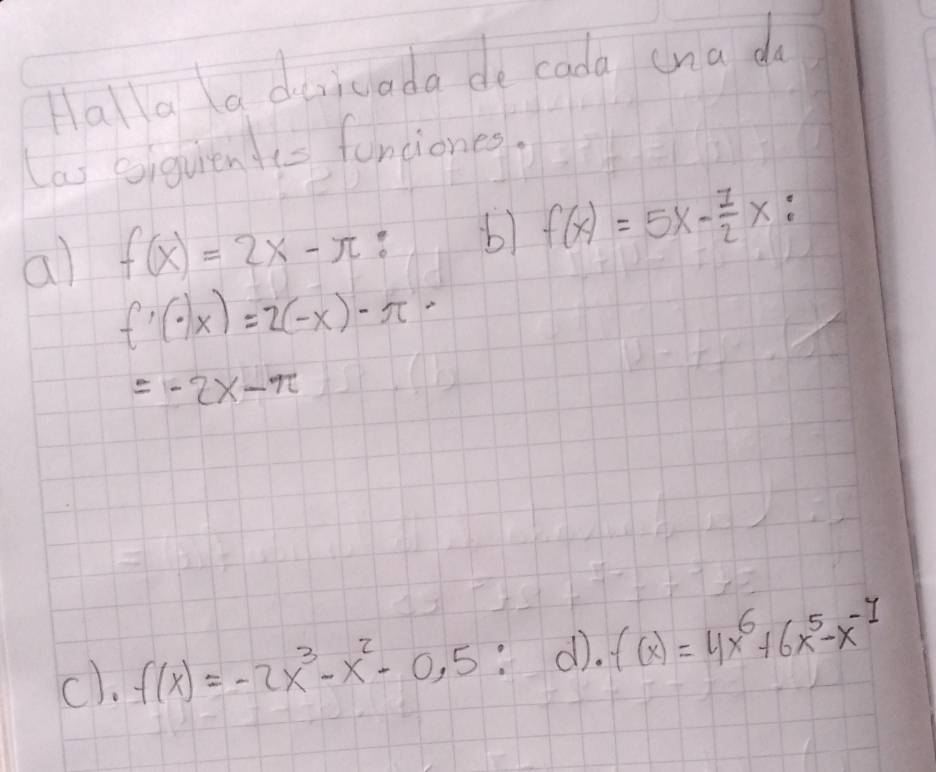 Halla la derivada de cada una de
las siguientes funciones.
a) f(x) = 2x - π : b) f(x) = 5x - 1/2 x :
f'(-)x) = 2(-x) - π .
= -2x - π
c). f(x) = -2x³ - x² - 0,5 : d). f(x) = 4x⁶ + 6x⁵ - x⁻¹